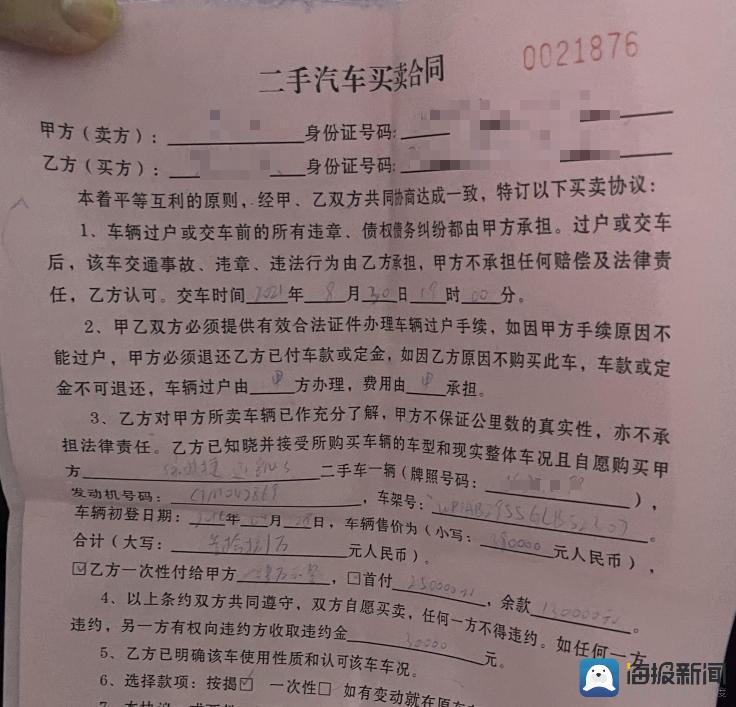 0021876
二手汽车买卖合同
甲方（卖方）：身份证号码：
乙方（买方）：身份证号码：
本着平等互利的原则，经甲、乙双方共同协商达成一致，特订以下买卖协议：
1、车辆过户或交车前的所有违章、债权债务纠纷都由甲方承担。过户或交车
后，该车交通事故、违章、违法行为由乙方承担，甲方不承担任何赔偿及法律责
任，乙方认可。交车时间2021年8月30日19时00分。
2、甲乙双方必须提供有效合法证件办理车辆过户手续，如因甲方手续原因不
能过户，甲方必须退还乙方已付车款或定金，如因乙方原因不购买此车，车款或定
金不可退还，车辆过户由甲方办理，费用由甲承担。
3、乙方对甲方所卖车辆已作充分了解，甲方不保证公里数的真实性，亦不承
担法律责任。乙方已知晓并接受所购买车辆的车型和现实整体车况且自愿购买甲
方二手车一辆（牌照号码：），
发动机号码：，车架号：。
车辆初登日期：年月日，车辆售价为（小写：380000元人民币），
合计（大写：元人民币）。
☑乙方一次性付给甲方，□首付250000元，余款130000元。
4、以上条约双方共同遵守，双方自愿买卖，任何一方不得违约。如任何一方
违约，另一方有权向违约方收取违约金30000元。
5、乙方已明确该车使用性质和认可该车车况。
6、选择款项：按揭☑ 一次性□ 如有变动就在原车
海报新闻